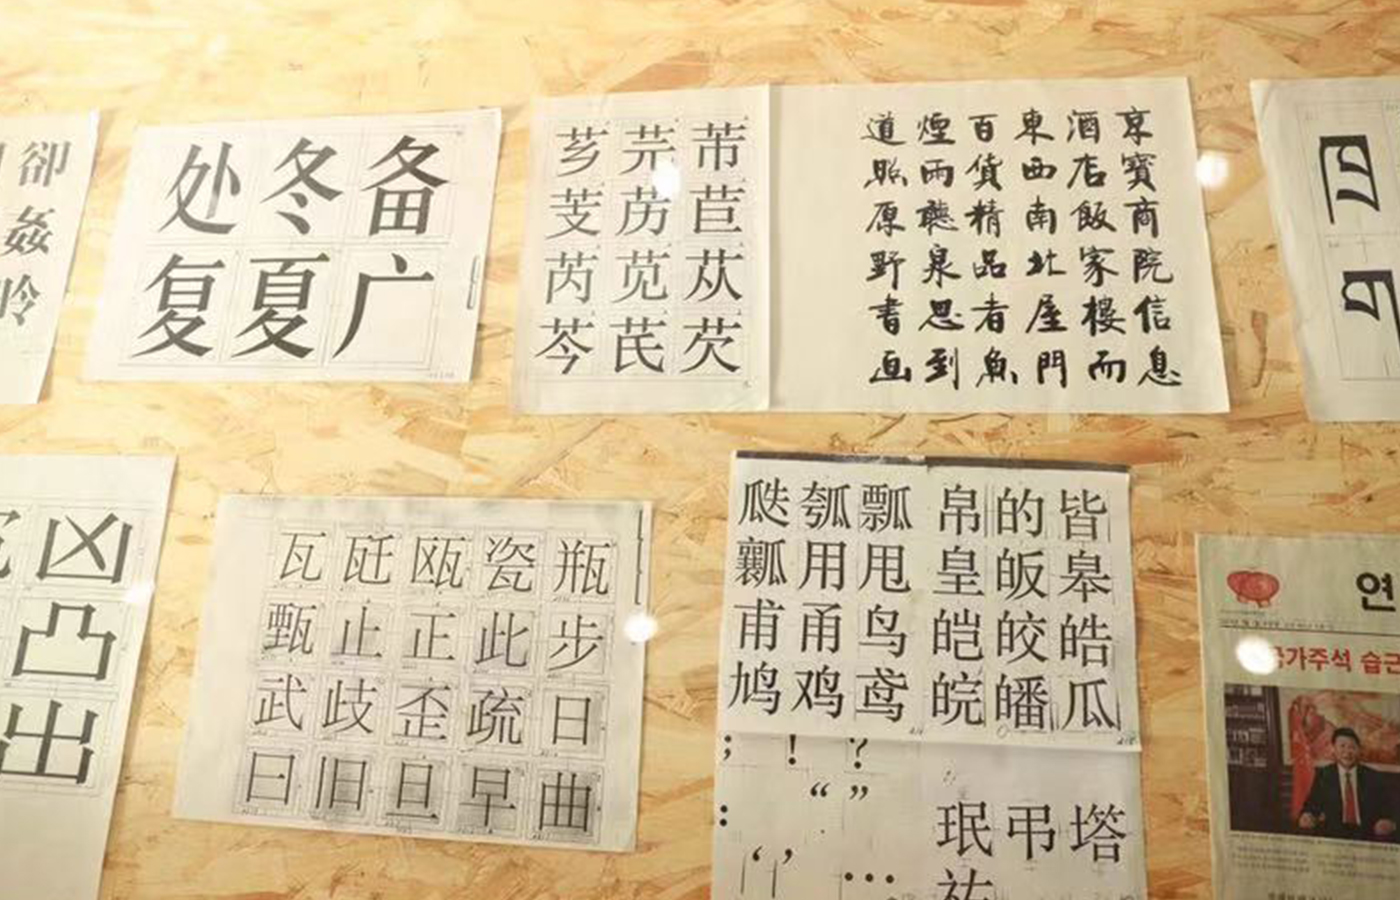 卸
姦
冷
处冬备
复夏广
芗芫芾
芰苈苣
芮苋苁
芩芪芡
道煙百東酒京
照雨貨西店寶
原聽精南飯商
野泉品北家院
書思者屋樓信
画到魚門而息
凶
凸
出
瓦瓩瓯瓷瓶
甄止正此步
武歧歪疏日
曰旧旦早曲
瓞瓠瓢
瓤用甩
甫甬鸟
鸠鸡鸢
帛的皆
皇皈皋
皑皎皓
皖皤瓜
; ! ?
“ ”
:
‘ ’
…
珉弔塔
祐
연
국가주석 습근